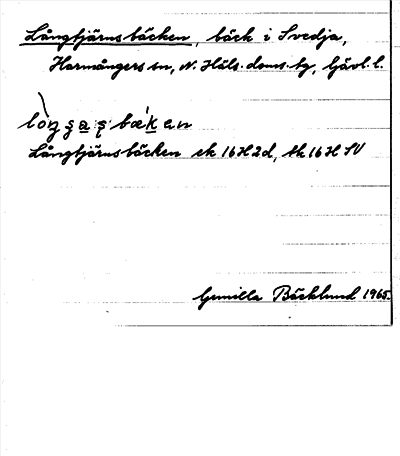 Långtjärnsbäcken, bäck i Svedja,
Harmångers sn, N. Häls. doms. tg, Gävl. l.
Långtjärnsbäcken ek 16H2d, tk 16H SV
Gunilla Bäcklund 1965.